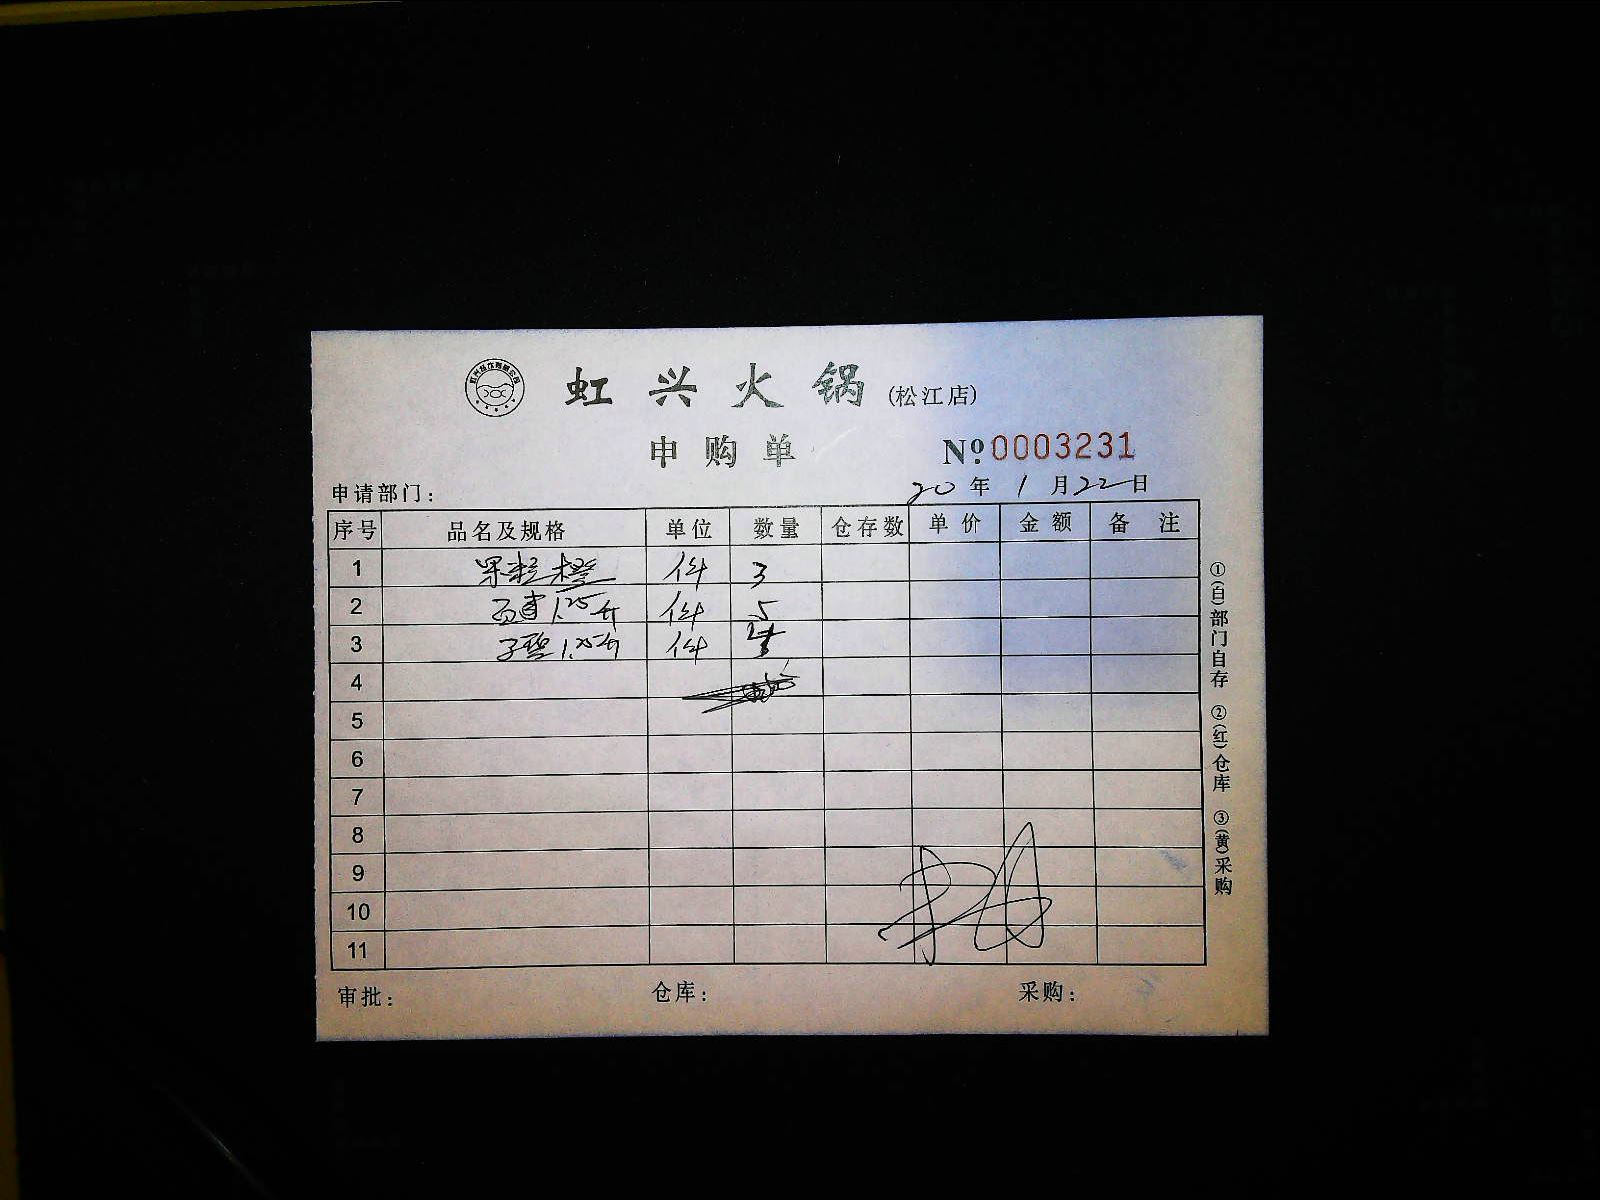 虹兴火锅(松江店)
申购单 Nº0003231
申请部门: 20年 1月22日
序号 品名及规格 单位 数量 仓存数 单价 金额 备注
1 果粒橙 件 3
2 百事1.25升 件 5
3 雪碧1.25升 件
4
5
6
7
8
9
10
11
审批: 仓库: 采购:
①(白)部门自存 ②(红)仓库 ③(黄)采购